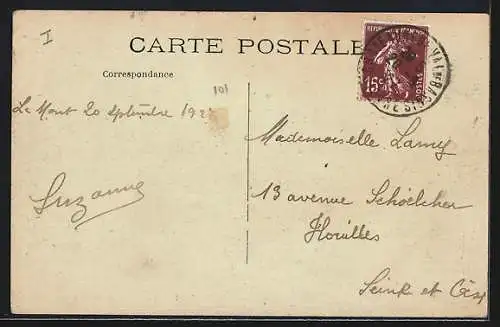 I
CARTE POSTALE
Correspondance
101
Le Mont 20 Septembre 192
Mademoiselle Lamy
Suzanne
13 avenue Schoëlcher
Houilles
Seine et Oise
15c
POSTES